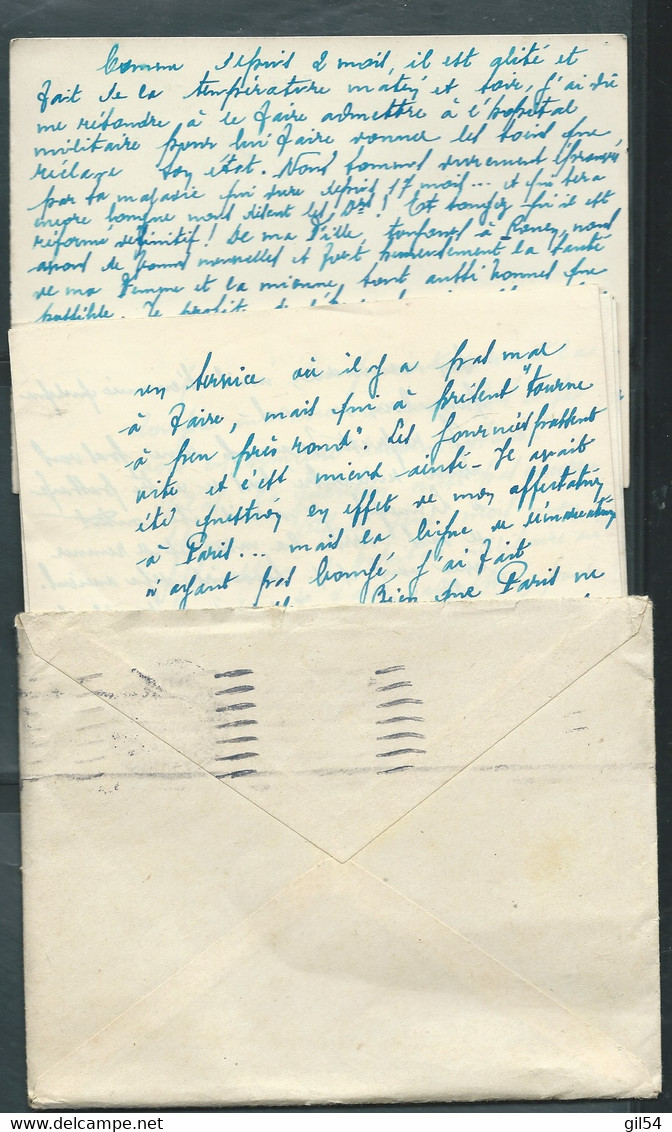 Comme depuis 2 mois, il est alité et
fait de la température matin et soir, j'ai dû
me résoudre à le faire admettre à l'hopital
militaire pour lui faire donner les soins que
réclame son état. Nous sommes durement éprouvés
par sa maladie qui dure depuis 17 mois... et qui sera
encore longue nous disent les Drs! Et songez qu'il est
réformé définitif! De ma Fille, toujours à nous
avons de bonnes nouvelles et fort heureusement la santé
de ma Femme et la mienne, sont aussi bonnes que
possible. Je
un service où il y a pas mal
à faire, mais qui à présent "tourne
à peu près rond" Les journées passent
vite et c'est mieux ainsi - Je avait
été question en effet de mon affectation
à Paris... mais la ligne de démarcation
n'ayant pas bougé, j'ai fait
Bien que Paris ne
gil54